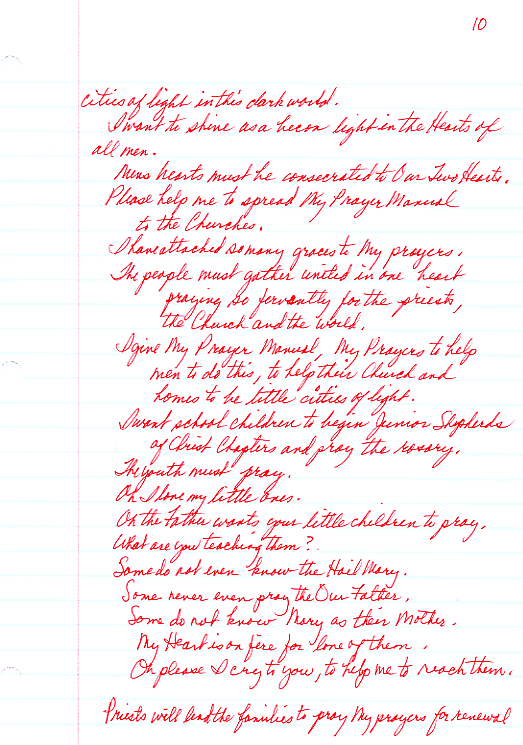 10
cities of light in this dark world.
I want to shine as a becon light in the Hearts of
all men.
Mens hearts must be consecrated to Our Two Hearts.
Please help me to spread My Prayer Manual
to the Churches.
I have attached so many graces to My prayers.
The people must gather united in one heart
praying so fervently for the priests,
the Church and the world.
I give My Prayer Manual, My Prayers to help
men to do this, to help their Church and
homes to be little citties of light.
I want school children to begin Junior Shepherds
of Christ Chapters and pray the rosary.
The youth must pray.
Oh I love my little ones.
Oh the Father wants your little children to pray.
What are you teaching them?
Some do not even know the Hail Mary.
Some never even pray the Our Father.
Some do not know Mary as their Mother.
My Heart is on fire for love of them.
Oh please I cry to you, to help me to reach them.
Priests will lead the families to pray My prayers for renewal